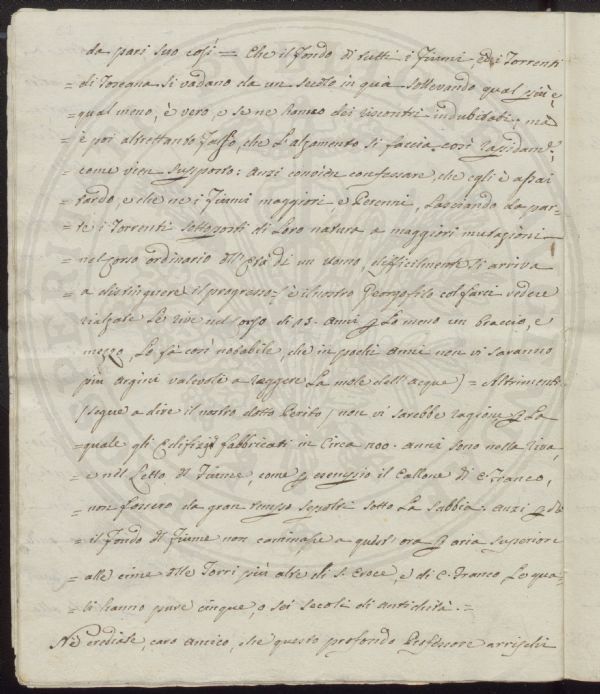 da pari suo così = Che il fondo di tutti i Fiumi, ed i Torrenti
= di Toscana si vadano da un secolo in quà sollevando qual più e
= qual meno, è vero, e se ne hanno dei riscontri indubitati: mà
= è poi altrettanto falso, che l'alzamento si faccia così rapidam.e
= come vien supposto: anzi convien confessare, che egli è assai
= tardo, e che ne i Fiumi maggiori, e Perenni, lasciando da par-
= te i Torrenti sottoposti di loro natura a maggiori mutazioni
= nel corso ordinario dell'Età di un uomo, difficilmente si arriva
= a distinguere il progresso (è il nostro Georgofilo col farci vedere
rialzate le rive nel corso di 23. anni p lo meno un braccio, e
mezzo, lo fà così notabile, che in pochi anni non vi saranno
più argini valevole a reggere la mole dell'acque) = Altrimenti
(segue a dire il nostro dotto Perito) non vi sarebbe ragione p la
= quale gli Edifizij fabbricati in circa 200. anni sono nella riva,
= e nel letto del Fiume, come p esempio il Callone di C. Franco,
= non fossero da gran tempo sepolti sotto la sabbia. anzi p
= il fondo del Fiume non caminasse a quest'ora p aria superiore
= alle cime delle Torri più alte di S. Croce, e di C. Franco, le qua-
= li hanno pure cinque, o sei secoli di antichità. =
Nè crediate, caro amico, che questo profondo Professore arrischi